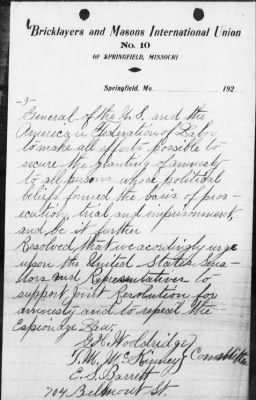 Bricklayers and Masons International Union
No. 10
OF SPRINGFIELD, MISSOURI
Springfield, Mo. 192
-3-
General of the U.S. and the
American Federation of Labor
to make all efforts possible to
secure the granting of amnesty
to all persons whose political
beliefs formed the basis of pros-
ecution, trial and imprisonment,
and be it further
Resolved that we accordingly urge
upon the United States Sena-
tors and Representatives to
support Joint Resolution for
amnesty and to repeal the
Espionage Law.
Wooldridge
T. M. McKenney Committee
E. S. Barrett
704 Belmont St.